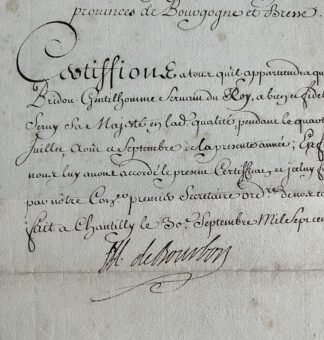 provinces de Bourgogne et Bresse
Certiffions a tour qu'il appartiendra qu
Bridou Gentilhomme Servant du Roy, a bien et fidel
Servy Sa Majesté en lad. qualité, pendant le quart
Juillet, Aout et Septembre de la presente année; En f
nous luy avons accordé le present Certifficat, et iceluy f
par notre Con.er premier Secretaire ord.re de nos c
fait a Chantilly le 30.e Septembre Mil sept cen
M. de Bourbon